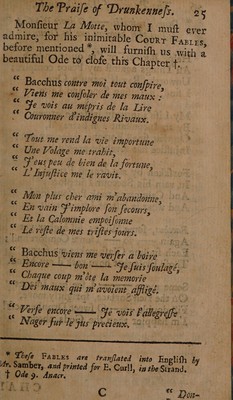 The Praise of Drunkenness. 25
Monsieur La Motte, whom I must ever
admire, for his inimitable COURT FABLES,
before mentioned *, will furnish us with a
beautiful Ode to close this Chapter †.
“ Bacchus contre moi tout conspire,
“ Viens me consoler de mes maux :
“ Je vois au mépris de la Lire
“ Couronner d'indignes Rivaux.
“ Tout me rend la vie importune
“ Une Volage me trahit,
“ J'eut peu de bien de la fortune,
“ L'Injustice me le ravit.
“ Mon plus cher ami m'abandonne,
“ En vain J'implore son secours,
“ Et la Calomnie empoisonne
“ Le reste de mes tristes jours.
“ Bacchus viens me verser a boire
“ Encore — bon — Je suis soulagé,
“ Chaque coup m'ôte la memoire
“ Des maux qui m'avoient affligé.
“ Verse encore — Je vois l'allegresse
“ Nager sur le jus precieux.
* These FABLES are translated into English by
Mr. Samber, and printed for E. Curll, in the Strand.
† Ode 9. Anacr.
C “ Don-